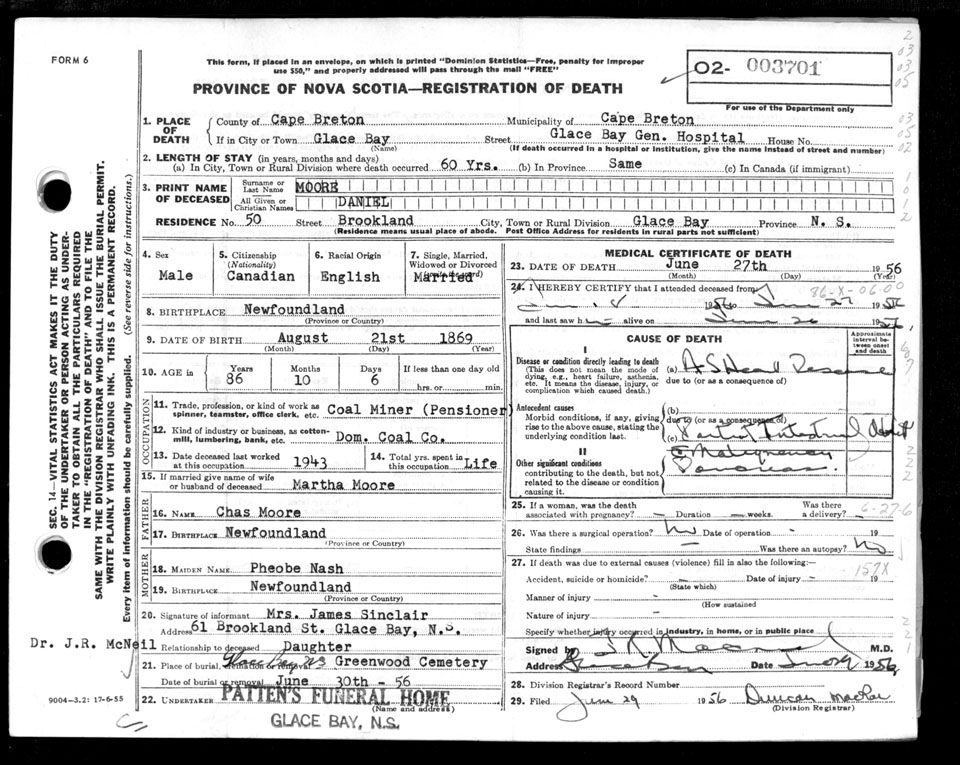 FORM 6
This form, if placed in an envelope, on which is printed "Dominion Statistics—Free, penalty for improper
use $50," and properly addressed will pass through the mail "FREE"
PROVINCE OF NOVA SCOTIA—REGISTRATION OF DEATH
02- 003701
For use of the Department only
1. PLACE OF DEATH County of Cape Breton Municipality of Cape Breton
If in City or Town Glace Bay Street Glace Bay Gen. Hospital House No.
(Name) (If death occurred in a hospital or institution, give the name instead of street and number)
2. LENGTH OF STAY (in years, months and days)
(a) In City, Town or Rural Division where death occurred 60 Yrs. (b) In Province Same (c) In Canada (if immigrant)
3. PRINT NAME OF DECEASED Surname or Last Name MOORE
All Given or Christian Names DANIEL
RESIDENCE No. 50 Street Brookland City, Town or Rural Division Glace Bay Province N. S.
(Residence means usual place of abode. Post Office Address for residents in rural parts not sufficient)
4. Sex Male
5. Citizenship (Nationality) Canadian
6. Racial Origin English
7. Single, Married, Widowed or Divorced Married
8. BIRTHPLACE Newfoundland
(Province or Country)
9. DATE OF BIRTH August 21st 1869
(Month) (Day) (Year)
10. AGE in Years Months Days If less than one day old
86 10 6 hrs. or min.
OCCUPATION
11. Trade, profession, or kind of work as spinner, teamster, office clerk, etc. Coal Miner (Pensioner)
12. Kind of industry or business, as cotton-mill, lumbering, bank, etc. Dom. Coal Co.
13. Date deceased last worked at this occupation 1943
14. Total yrs. spent in this occupation Life
15. If married give name of wife or husband of deceased Martha Moore
FATHER
16. NAME Chas Moore
17. BIRTHPLACE Newfoundland
(Province or Country)
MOTHER
18. MAIDEN NAME Pheobe Nash
19. BIRTHPLACE Newfoundland
(Province or Country)
20. Signature of informant Mrs. James Sinclair
Address 61 Brookland St. Glace Bay, N.S.
Dr. J.R. McNeil
Relationship to deceased Daughter
21. Place of burial, cremation or removal Glace Bay NS Greenwood Cemetery
Date of burial or removal June 30th - 56
22. UNDERTAKER PATTEN'S FUNERAL HOME
(Name and address)
GLACE BAY, N.S.
9004-3.2: 17-6-55
MEDICAL CERTIFICATE OF DEATH
23. DATE OF DEATH June 27th 1956
(Month) (Day) (Year)
86-X-06-00
24. I HEREBY CERTIFY that I attended deceased from
1956 to June 27 1956
and last saw h alive on June 26 1956
CAUSE OF DEATH
Approximate interval between onset and death
I
Disease or condition directly leading to death
(This does not mean the mode of dying, e.g., heart failure, asthenia, etc. It means the disease, injury, or complication which caused death.)
(a) A S Heart Disease
due to (or as a consequence of)
Antecedent causes
Morbid conditions, if any, giving rise to the above cause, stating the underlying condition last.
(b)
due to (or as a consequence of)
(c) Intestinal
II
Other significant conditions
contributing to the death, but not related to the disease or condition causing it.
Malignancy
Pancreas
25. If a woman, was the death associated with pregnancy? Duration weeks. Was there a delivery?
6-27-6
26. Was there a surgical operation? No Date of operation 19
State findings Was there an autopsy? No
27. If death was due to external causes (violence) fill in also the following:—
157X
Accident, suicide or homicide? Date of injury 19
(State which)
Manner of injury
(How sustained
Nature of injury
Specify whether injury occurred in industry, in home, or in public place
Signed by M.D.
Address Glace Bay Date 1956
28. Division Registrar's Record Number
29. Filed June 29 1956 Duncan
(Division Registrar)
SEC. 14—VITAL STATISTICS ACT MAKES IT THE DUTY
OF THE UNDERTAKER OR PERSON ACTING AS UNDER-
TAKER TO OBTAIN ALL THE PARTICULARS REQUIRED
IN THE "REGISTRATION OF DEATH" AND TO FILE THE
SAME WITH THE DIVISION REGISTRAR WHO SHALL ISSUE THE BURIAL PERMIT.
WRITE PLAINLY WITH UNFADING INK. THIS IS A PERMANENT RECORD.
Every item of information should be carefully supplied. (See reverse side for instructions.)